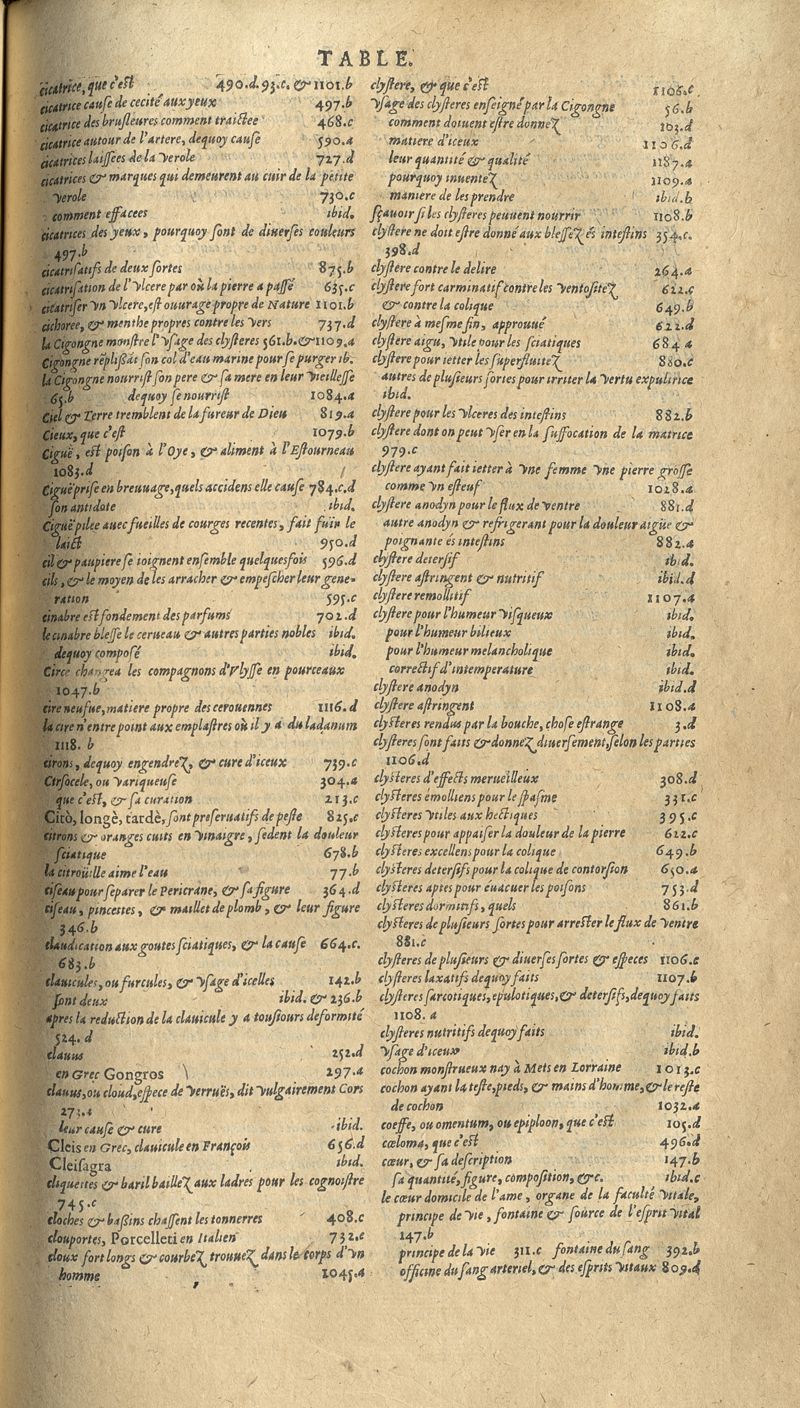 TABLE.
cicatrice, que c'eſt 490.d. 93.c. & 1101.b
cicatrice cauſe de cecité aux yeux 497.b
cicatrice des bruſleures comment traictee 468.c
cicatrice autour de l'artere, dequoy cauſe 590.a
cicatrices laiſſees de la verole 727.d
cicatrices & marques qui demeurent au cuir de la petite
verole 730.c
comment effacees ibid.
cicatrices des yeux, pourquoy ſont de diuerſes couleurs
497.b
cicatriſatifs de deux ſortes 875.b
cicatriſation de l'vlcere par où la pierre a paſſé 635.c
cicatriſer vn vlcere, eſt ouurage propre de Nature 1101.b
cichoree, & menthe propres contre les vers 737.d
la Cigongne monſtre l'vſage des clyſteres 561.b. & 1109.a
Cigongne rēpliſſāt ſon col d'eau marine pour ſe purger ib.
la Cigongne nourriſt ſon pere & ſa mere en leur vieilleſſe
65.b dequoy ſe nourriſt 1084.a
Ciel & Terre tremblent de la fureur de Dieu 819.a
Cieux, que c'eſt 1079.b
Ciguë, eſt poiſon à l'Oye, & aliment à l'Eſtourneau
1083.d
Ciguë priſe en breuuage, quels accidens elle cauſe 784.c.d
ſon antidote ibid.
Ciguë pilee auec fueilles de courges recentes, fait fuïr le
laict 950.d
cil & paupiere ſe ioignent enſemble quelquesfois 596.d
cils, & le moyen de les arracher & empeſcher leur gene-
ration 595.c
cinabre eſt fondement des parfums 702.d
le cinabre bleſſe le cerueau & autres parties nobles ibid.
dequoy compoſé ibid.
Circe changea les compagnons d'Vlyſſe en pourceaux
1047.b
cire neufue, matiere propre des cerouennes 1116.d
la cire n'entre point aux emplaſtres où il y a du ladanum
1118. b
cirons, dequoy engendrez, & cure d'iceux 739.c
Cirſocele, ou variqueuſe 304.a
que c'eſt, & ſa curation 213.c
Citò, longè, tardè, ſont preſeruatifs de peſte 825.c
citrons & oranges cuits en vinaigre, ſedent la douleur
ſciatique 678.b
la citroüille aime l'eau 77.b
ciſeau pour ſeparer le Pericrane, & ſa figure 364.d
ciſeau, pincettes, & maillet de plomb, & leur figure
346.b
claudication aux goutes ſciatiques, & la cauſe 664.c.
683.b
clauicules, ou furcules, & vſage d'icelles 142.b
ſont deux ibid. & 236.b
apres la reduction de la clauicule y a touſiours deformité
524. d
clauus 252.d
en Grec Gongros 297.a
clauus, ou cloud, eſpece de verruës, dit vulgairement Cors
leur cauſe & cure ibid.
Cleis en Grec, clauicule en François 656.d
Cleiſagra ibid.
cliquettes & baril baillez aux ladres pour les cognoiſtre
745.c
cloches & baßins chaſſent les tonnerres 408.c
clouportes, Porcelleti en Italien 732.c
cloux fort longs & courbez trouuez dans le corps d'vn
homme 1045.a
clyſtere, & que c'eſt 1106.c
vſage des clyſteres enſeigné par la Cigongne 56.b
comment doiuent eſtre donnez 103.d
matiere d'iceux 1106.d
leur quantité & qualité 1187.a
pourquoy inuentez 1109.a
maniere de les prendre ibid.b
ſçauoir ſi les clyſteres peuuent nourrir 1108.b
clyſtere ne doit eſtre donné aux bleſſez és inteſtins 354.c.
398.d
clyſtere contre le delire 264.a
clyſtere fort carminatif contre les ventoſitez 622.c
& contre la colique 649.b
clyſtere à meſme fin, approuué 622.d
clyſtere aigu, vtile pour les ſciatiques 684 a
clyſtere pour ietter les ſuperfluitez 880.c
autres de pluſieurs ſortes pour irriter la vertu expultrice
ibid.
clyſtere pour les vlceres des inteſtins 882.b
clyſtere dont on peut vſer en la ſuffocation de la matrice
979.c
clyſtere ayant fait ietter à vne femme vne pierre groſſe
comme vn eſteuf 1028.a
clyſtere anodyn pour le flux de ventre 881.d
autre anodyn & refrigerant pour la douleur aiguë &
poignante és inteſtins 882.a
clyſtere deterſif ibid.
clyſtere aſtringent & nutritif ibid.d
clyſtere remollitif 1107.a
clyſtere pour l'humeur viſqueux ibid.
pour l'humeur bilieux ibid.
pour l'humeur melancholique ibid.
correctif d'intemperature ibid.
clyſtere anodyn ibid.d
clyſtere aſtringent 1108.a
clyſteres rendus par la bouche, choſe eſtrange 3.d
clyſteres ſont faits & donnez diuerſement, ſelon les parties
1106.d
clyſteres d'effects merueilleux 308.d
clyſteres émolliens pour le ſpaſme 331.c
clyſteres vtiles aux hectiques 395.c
clyſteres pour appaiſer la douleur de la pierre 622.c
clyſteres excellens pour la colique 649.b
clyſteres deterſifs pour la colique de contorſion 650.a
clyſteres aptes pour euacuer les poiſons 753.d
clyſteres dormitifs, quels 861.b
clyſteres de pluſieurs ſortes pour arreſter le flux de ventre
881.c
clyſteres de pluſieurs & diuerſes ſortes & eſpeces 1106.c
clyſteres laxatifs dequoy faits 1107.b
clyſteres ſarcotiques, epulotiques, & deterſifs, dequoy faits
1108. a
clyſteres nutritifs dequoy faits ibid.
vſage d'iceux ibid.b
cochon monſtrueux nay à Mets en Lorraine 1013.c
cochon ayant la teſte, pieds, & mains d'homme, & le reſte
de cochon 1032.a
coeffe, ou omentum, ou epiploon, que c'eſt 105.d
cœloma, que c'eſt 496.d
cœur, & ſa deſcription 147.b
ſa quantité, figure, compoſition, &c. ibid.c
le cœur domicile de l'ame, organe de la faculté vitale,
principe de vie, fontaine & ſource de l'eſprit vital
147.b
principe de la vie 311.c fontaine du ſang 392.b
officine du ſang arteriel, & des eſprits vitaux 809.d